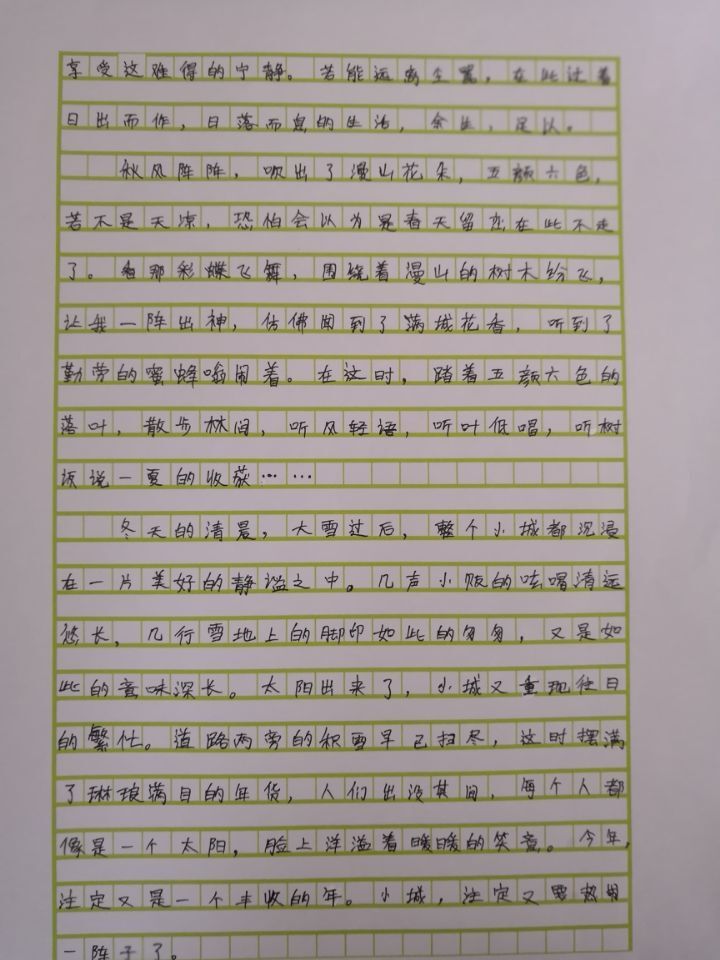 享受这难得的宁静。若能远离尘嚣，在此过着
日出而作，日落而息的生活，余生，足以。
秋风阵阵，吹出了漫山花朵，五颜六色，
若不是天凉，恐怕会以为是春天留恋在此不走
了。那彩蝶飞舞，围绕着漫山的树木纷飞，
让我一阵出神，仿佛闻到了满城花香，听到了
勤劳的蜜蜂嗡闹着。在这时，踏着五颜六色的
落叶，散步林间，听风轻语，听叶低唱，听树
诉说一夏的收获……
冬天的清晨，大雪过后，整个小城都沉浸
在一片美好的静谧之中。几声小贩的吆喝清远
悠长，几行雪地上的脚印如此的匆匆，又是如
此的意味深长。太阳出来了，小城又重现往日
的繁忙。道路两旁的积雪早已扫尽，这时摆满
了琳琅满目的年货，人们出没其间，每个人都
像是一个太阳，脸上洋溢着暖暖的笑意。今年，
注定又是一个丰收的年。小城，注定又要热闹
一阵子了。